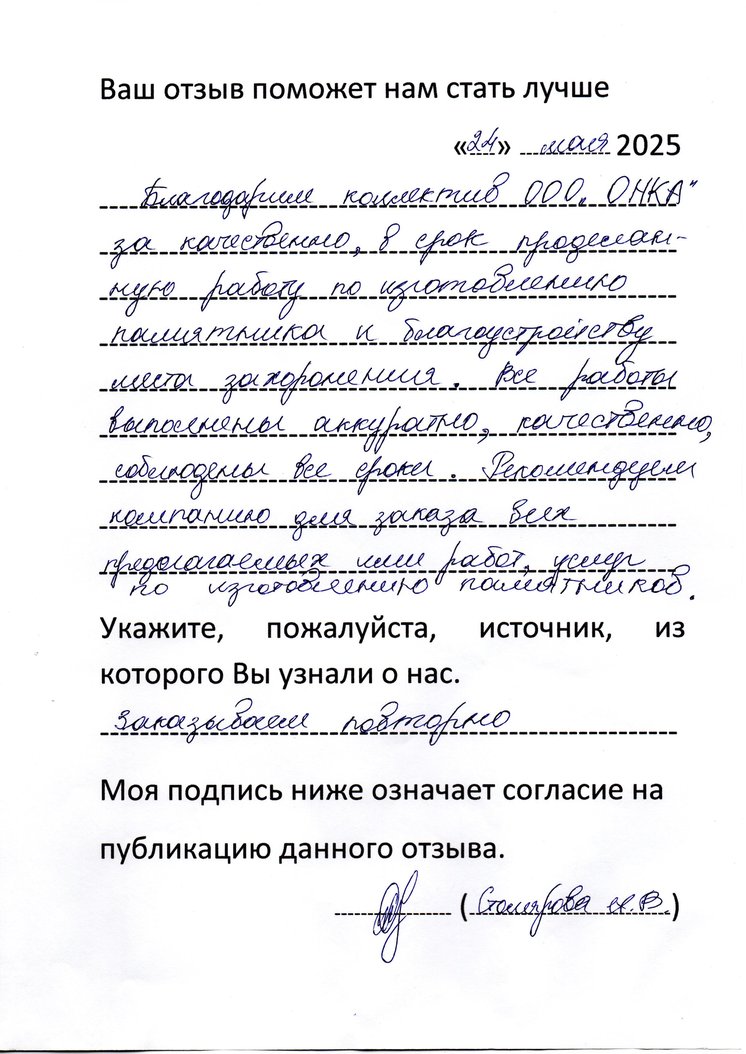 Ваш отзыв поможет нам стать лучше
«24» мая 2025
Благодарим коллектив ООО „ОНКА"
за качественно, в срок проделан-
ную работу по изготовлению
памятника и благоустройству
места захоронения. Все работы
выполнены аккуратно, качественно,
соблюдены все сроки. Рекомендуем
компанию для заказа всех
предлагаемых ими работ, услуг
по изготовлению памятников.
Укажите, пожалуйста, источник, из
которого Вы узнали о нас.
Заказываем повторно
Моя подпись ниже означает согласие на
публикацию данного отзыва.
(Столярова И.В.)